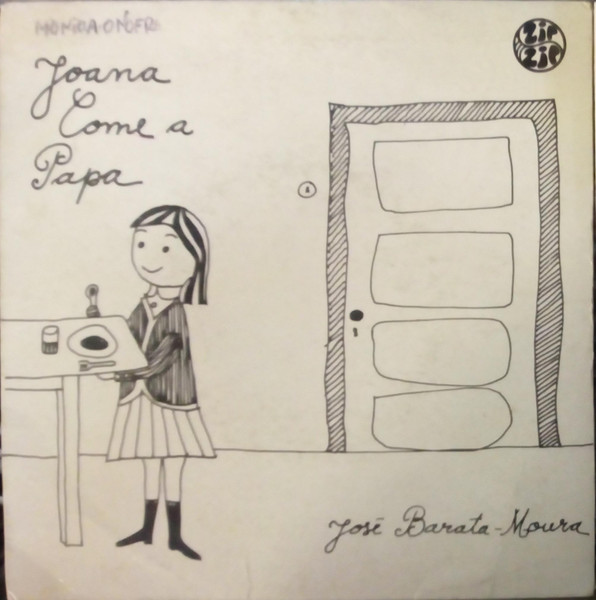 MONICA ONOFRE
Joana
Come a
Papa
ZIP
ZIP
José Barata-Moura